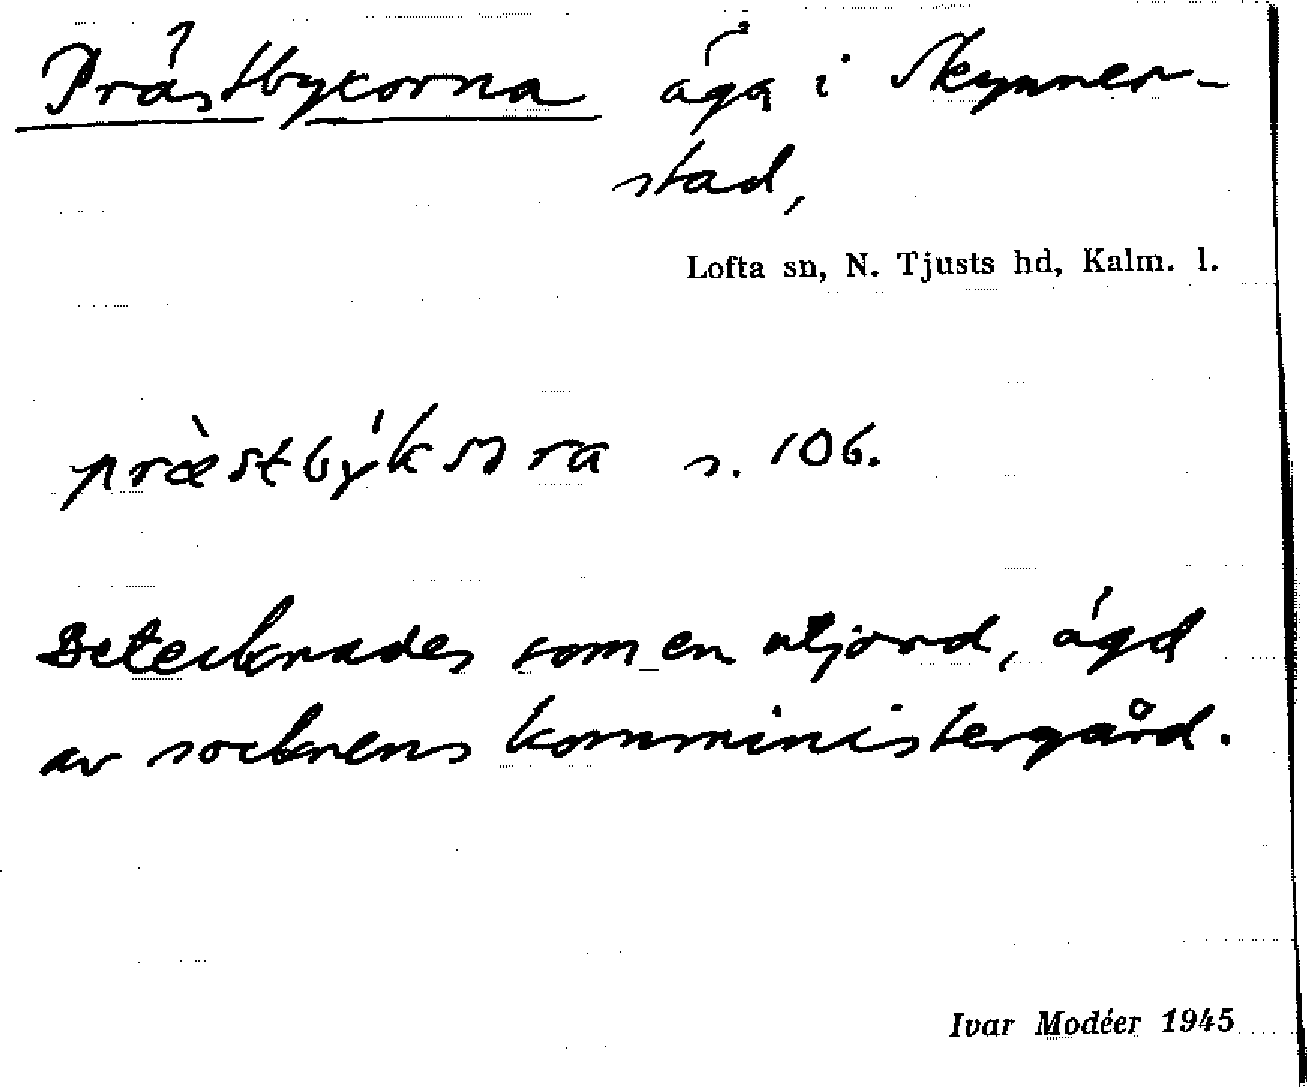 Prästbyxorna äga i Skynner-
stad,
Lofta sn, N. Tjusts hd, Kalm. l.
præ̀stbýksɷra s. 106.
Betecknades som en utjord, ägd
av socknens komministergård.
Ivar Modéer 1945